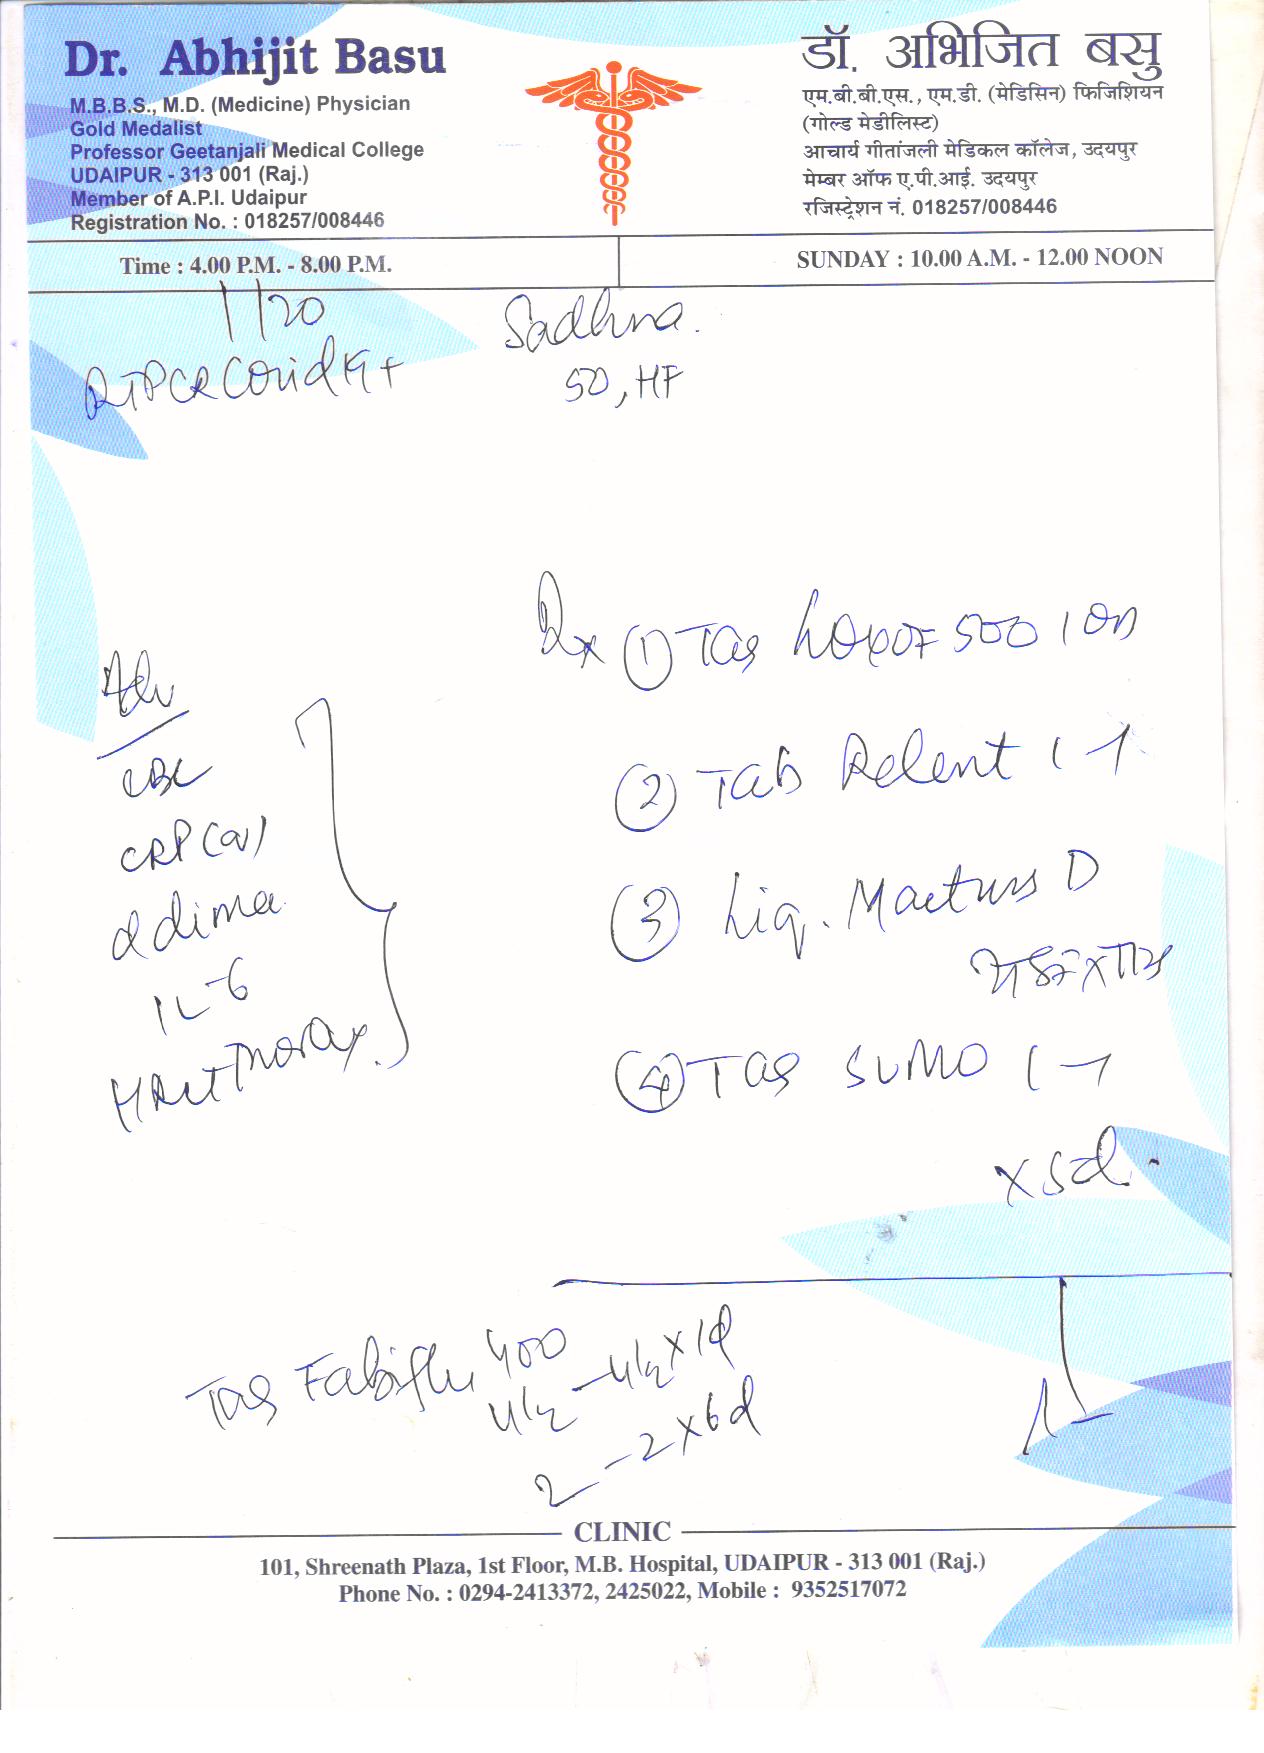 Dr. Abhijit Basu
M.B.B.S., M.D. (Medicine) Physician
Gold Medalist
Professor Geetanjali Medical College
UDAIPUR - 313 001 (Raj.)
Member of A.P.I. Udaipur
Registration No. : 018257/008446
डॉ. अभिजित बसु
एम.बी.बी.एस., एम.डी. (मेडिसिन) फिजिशियन
(गोल्ड मेडीलिस्ट)
आचार्य गीतांजली मेडिकल कॉलेज, उदयपुर
मेम्बर ऑफ ए.पी.आई. उदयपुर
रजिस्ट्रेशन नं. 018257/008446
Time : 4.00 P.M. - 8.00 P.M.
SUNDAY : 10.00 A.M. - 12.00 NOON
Sadhna.
50, HF
RTPCR Covid 19 +
Adv
CBC
CRP (Q)
d dimer
IL-6
HRCT Thorax.
Rx (1) Tab 500 1 OD
(2) Tab Relent 1 - 1
(3) Liq. D
(4) Tab SUMO 1 - 1
x 5d.
Tab Fabiflu 400
4 1/2 - 4 1/2 x 1d
2 - 2 x 6d
CLINIC
101, Shreenath Plaza, 1st Floor, M.B. Hospital, UDAIPUR - 313 001 (Raj.)
Phone No. : 0294-2413372, 2425022, Mobile : 9352517072